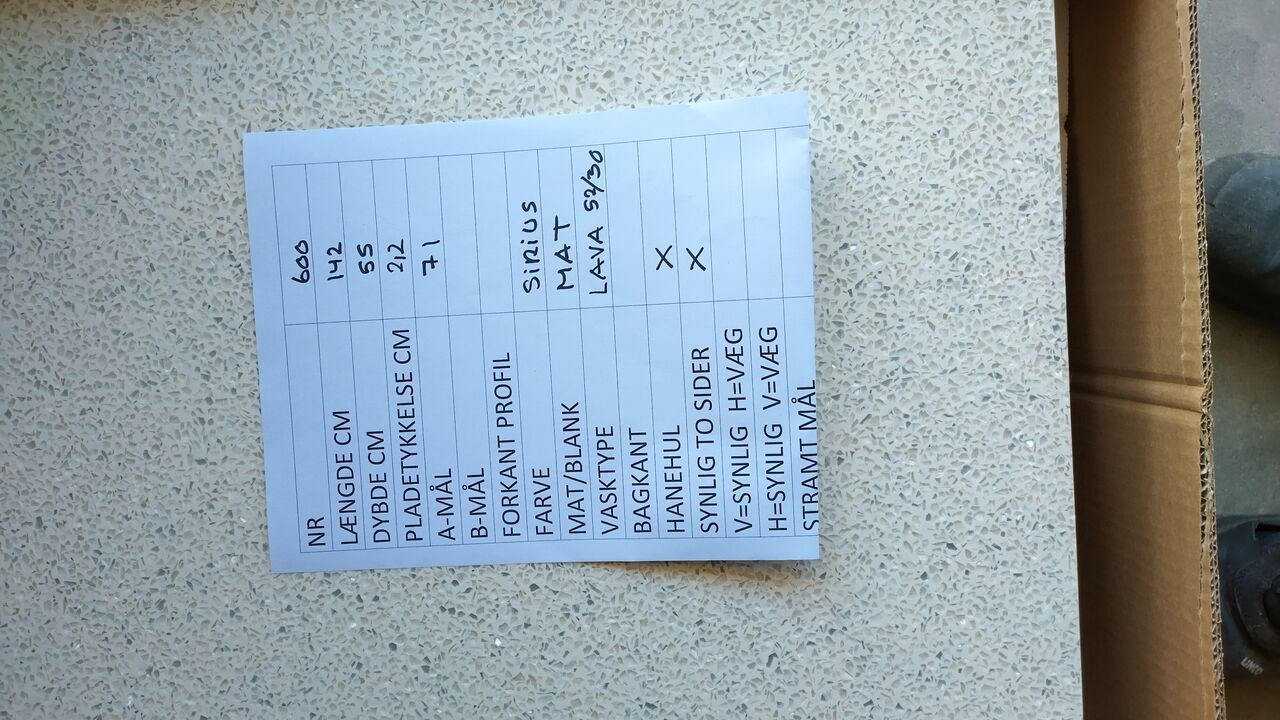 NR 600
LÆNGDE CM 142
DYBDE CM 55
PLADETYKKELSE CM 2,2
A-MÅL 71
B-MÅL
FORKANT PROFIL
FARVE SIRIUS
MAT/BLANK MAT
VASKTYPE LAVA 52/30
BAGKANT
HANEHUL X
SYNLIG TO SIDER X
V=SYNLIG H=VÆG
H=SYNLIG V=VÆG
STRAMT MÅL